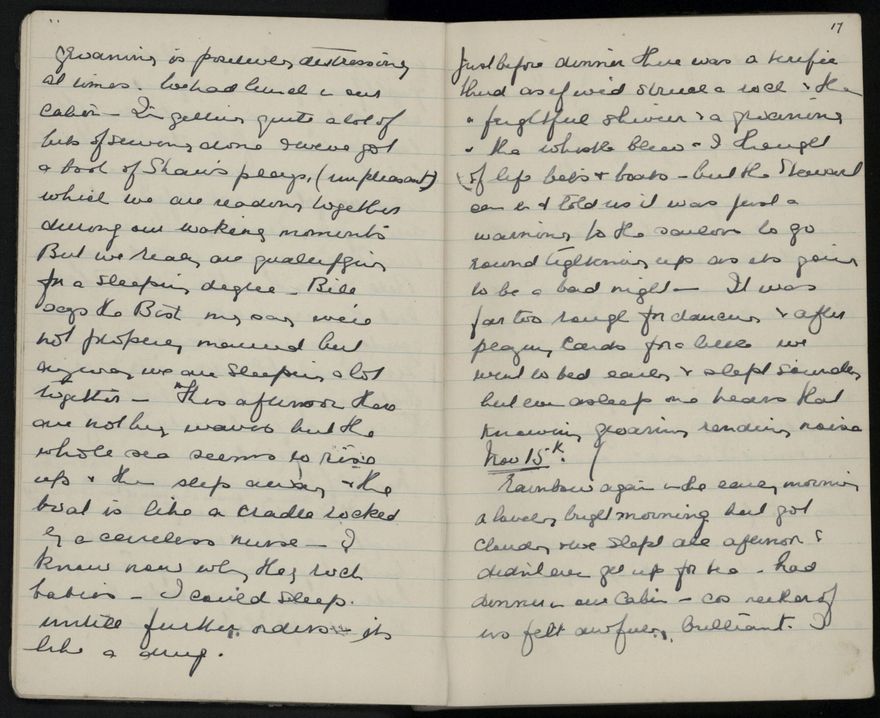 groaning is positively distressing
at times. We had lunch in our
cabin – I'm getting quite a lot of
bits of sewing done & we've got
a book of Shaw's plays, (unpleasant)
which we are reading together
during our waking moments
But we really are qualifying
for a sleeping degree – Bill
says the Bist may say we're
not properly married but
anyway we are sleeping a lot
together – This afternoon there
are nothing waves but the
whole sea seems to rise
up & then slip away & the
boat is like a cradle rocked
by a careless nurse – I
know now why they rock
babies – I could sleep
until further orders – its
like a drug.
17
Just before dinner there was a terrific
thud as if we'd struck a rock & then
a frightful shiver & a groaning
& the whistle blew – I thought
of life belts & boats – but the Steward
came in & told us it was just a
warning to the saloon to go
round tightening up as its going
to be a bad night – It was
far too rough for dancing & after
playing cards for a while we
went to bed early & slept soundly
but even asleep one hears that
groaning rending noise
Nov 15th.
Rainbow again in the early morning
a lovely bright morning but got
cloudy & we slept all afternoon &
didn't even get up for tea – had
dinner in our cabin – cos neither of
us felt awfully brilliant. I